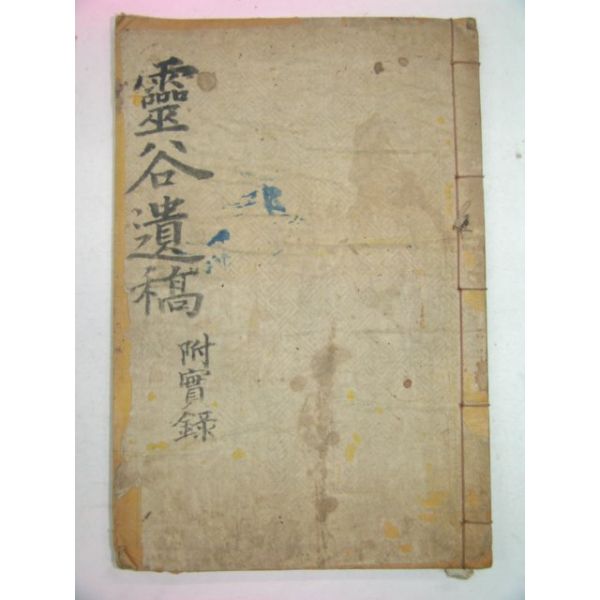 靈谷遺稿
附實錄